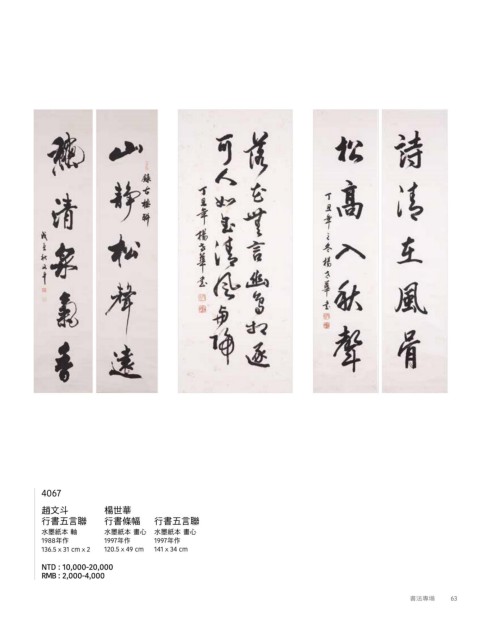 詩清在風骨
松高入秋聲
丁丑年之冬楊世華書
落花無言幽鳥相逐
可人如玉清風與歸
丁丑年楊世華書
山靜松聲遠
錄古楹聯
秋清泉氣香
戊辰秋文斗
4067
趙文斗
行書五言聯
水墨紙本 軸
1988年作
136.5 x 31 cm x 2
楊世華
行書條幅
水墨紙本 畫心
1997年作
120.5 x 49 cm
行書五言聯
水墨紙本 畫心
1997年作
141 x 34 cm
NTD : 10,000-20,000
RMB : 2,000-4,000
書法專場 63